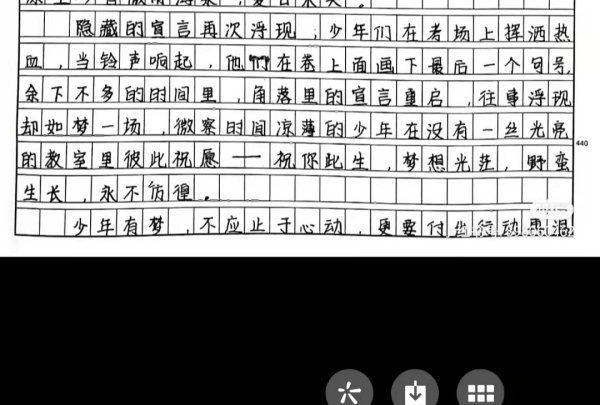 隐藏的宣言再次浮现，少年们在考场上挥洒热
血，当铃声响起，他们在卷上面画下最后一个句号，
余下不多的的时间里，角落里的宣言重启，往事浮现
却如梦一场，微察时间凉薄的少年在没有一丝光亮
440
的教室里彼此祝愿——祝你此生，梦想光茫，野蛮
生长，永不彷徨。
少年有梦，不应止于心动，更要付出行动